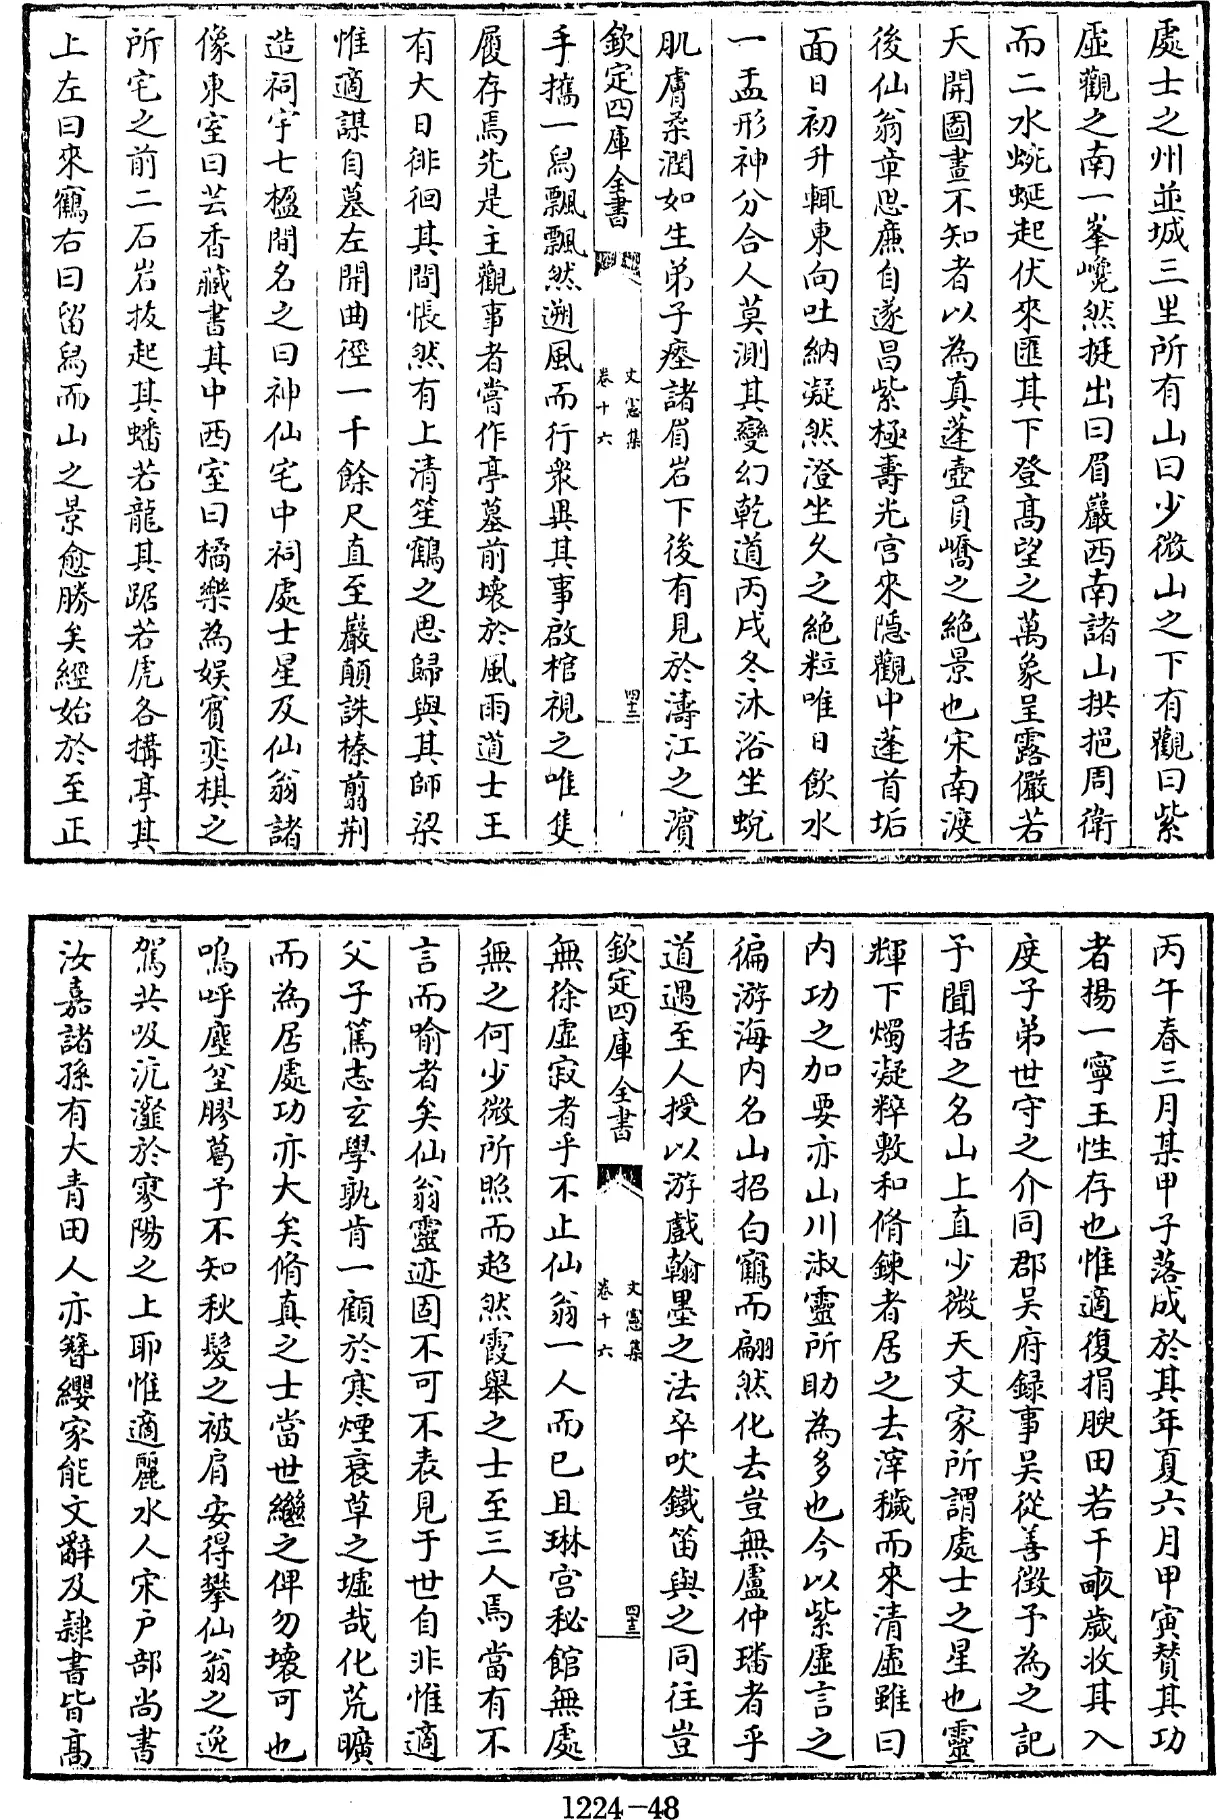 處士之州並城三里所有山曰少微山之下有觀曰紫
虛觀之南一峯巉然挺出曰眉巖西南諸山拱挹周衛
而二水蜿蜒起伏來匯其下登髙望之萬象呈露儼若
天開圖畫不知者以為真蓬壺員嶠之絶景也宋南渡
後仙翁章思廉自遂昌紫極壽光宫來隱觀中蓬首垢
面日初升輒東向吐納凝然澄坐久之絶粒唯日飲水
一盂形神分合人莫測其變幻乾道丙戌冬沐浴坐蛻
肌膚柔潤如生弟子瘞諸眉岩下後有見於濤江之濵
欽定四庫全書
文憲集
卷十六
四十二
手攜一舄飄飄然遡風而行衆異其事啟棺視之唯隻
履存焉先是主觀事者嘗作亭墓前壞於風雨道士王
有大日徘徊其間悵然有上清笙鶴之思歸與其師梁
惟適謀自墓左開曲徑一千餘尺直至巖顛誅榛翦荆
造祠宇七楹間名之曰神仙宅中祠處士星及仙翁諸
像東室曰芸香藏書其中西室曰橘樂為娱賓奕棋之
所宅之前二石岩抜起其蟠若龍其踞若虎各搆亭其
上左曰來鶴右曰留舄而山之景愈勝矣經始於至正
丙午春三月某甲子落成於其年夏六月甲寅賛其功
者揚一寧王性存也惟適復捐腴田若干畝歲收其入
度子弟世守之介同郡吴府録事吴從善徴予為之記
予聞括之名山上直少微天文家所謂處士之星也靈
輝下燭凝粹敷和脩鍊者居之去滓穢而來清虛雖曰
内功之加要亦山川淑靈所助為多也今以紫虛言之
徧游海内名山招白鶴而翩然化去豈無盧仲璠者乎
道遇至人授以游戲翰墨之法卒吹鐵笛與之同往豈
欽定四庫全書
文憲集
卷十六
四十三
無徐虛寂者乎不止仙翁一人而已且琳宫秘館無處
無之何少微所照而超然霞舉之士至三人焉當有不
言而喻者矣仙翁靈迹固不可不表見于世自非惟適
父子篤志玄學孰肯一顧於寒煙衰草之墟哉化荒曠
而為居處功亦大矣脩真之士當世繼之俾勿壞可也
嗚呼塵坌膠葛予不知秋髮之被肩安得攀仙翁之逸
駕共吸沆瀣於寥陽之上耶惟適麗水人宋户部尚書
汝嘉諸孫有大青田人亦簪纓家能文辭及隷書皆髙
1224-48